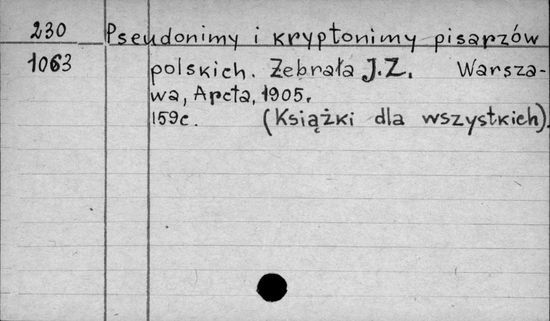 230 Pseudonimy i kryptonimy pisarzów
1063 polskich. Zebrała J.Z. Warsza-
wa, Arcta, 1905.
159c. (Książki dla wszystkich).